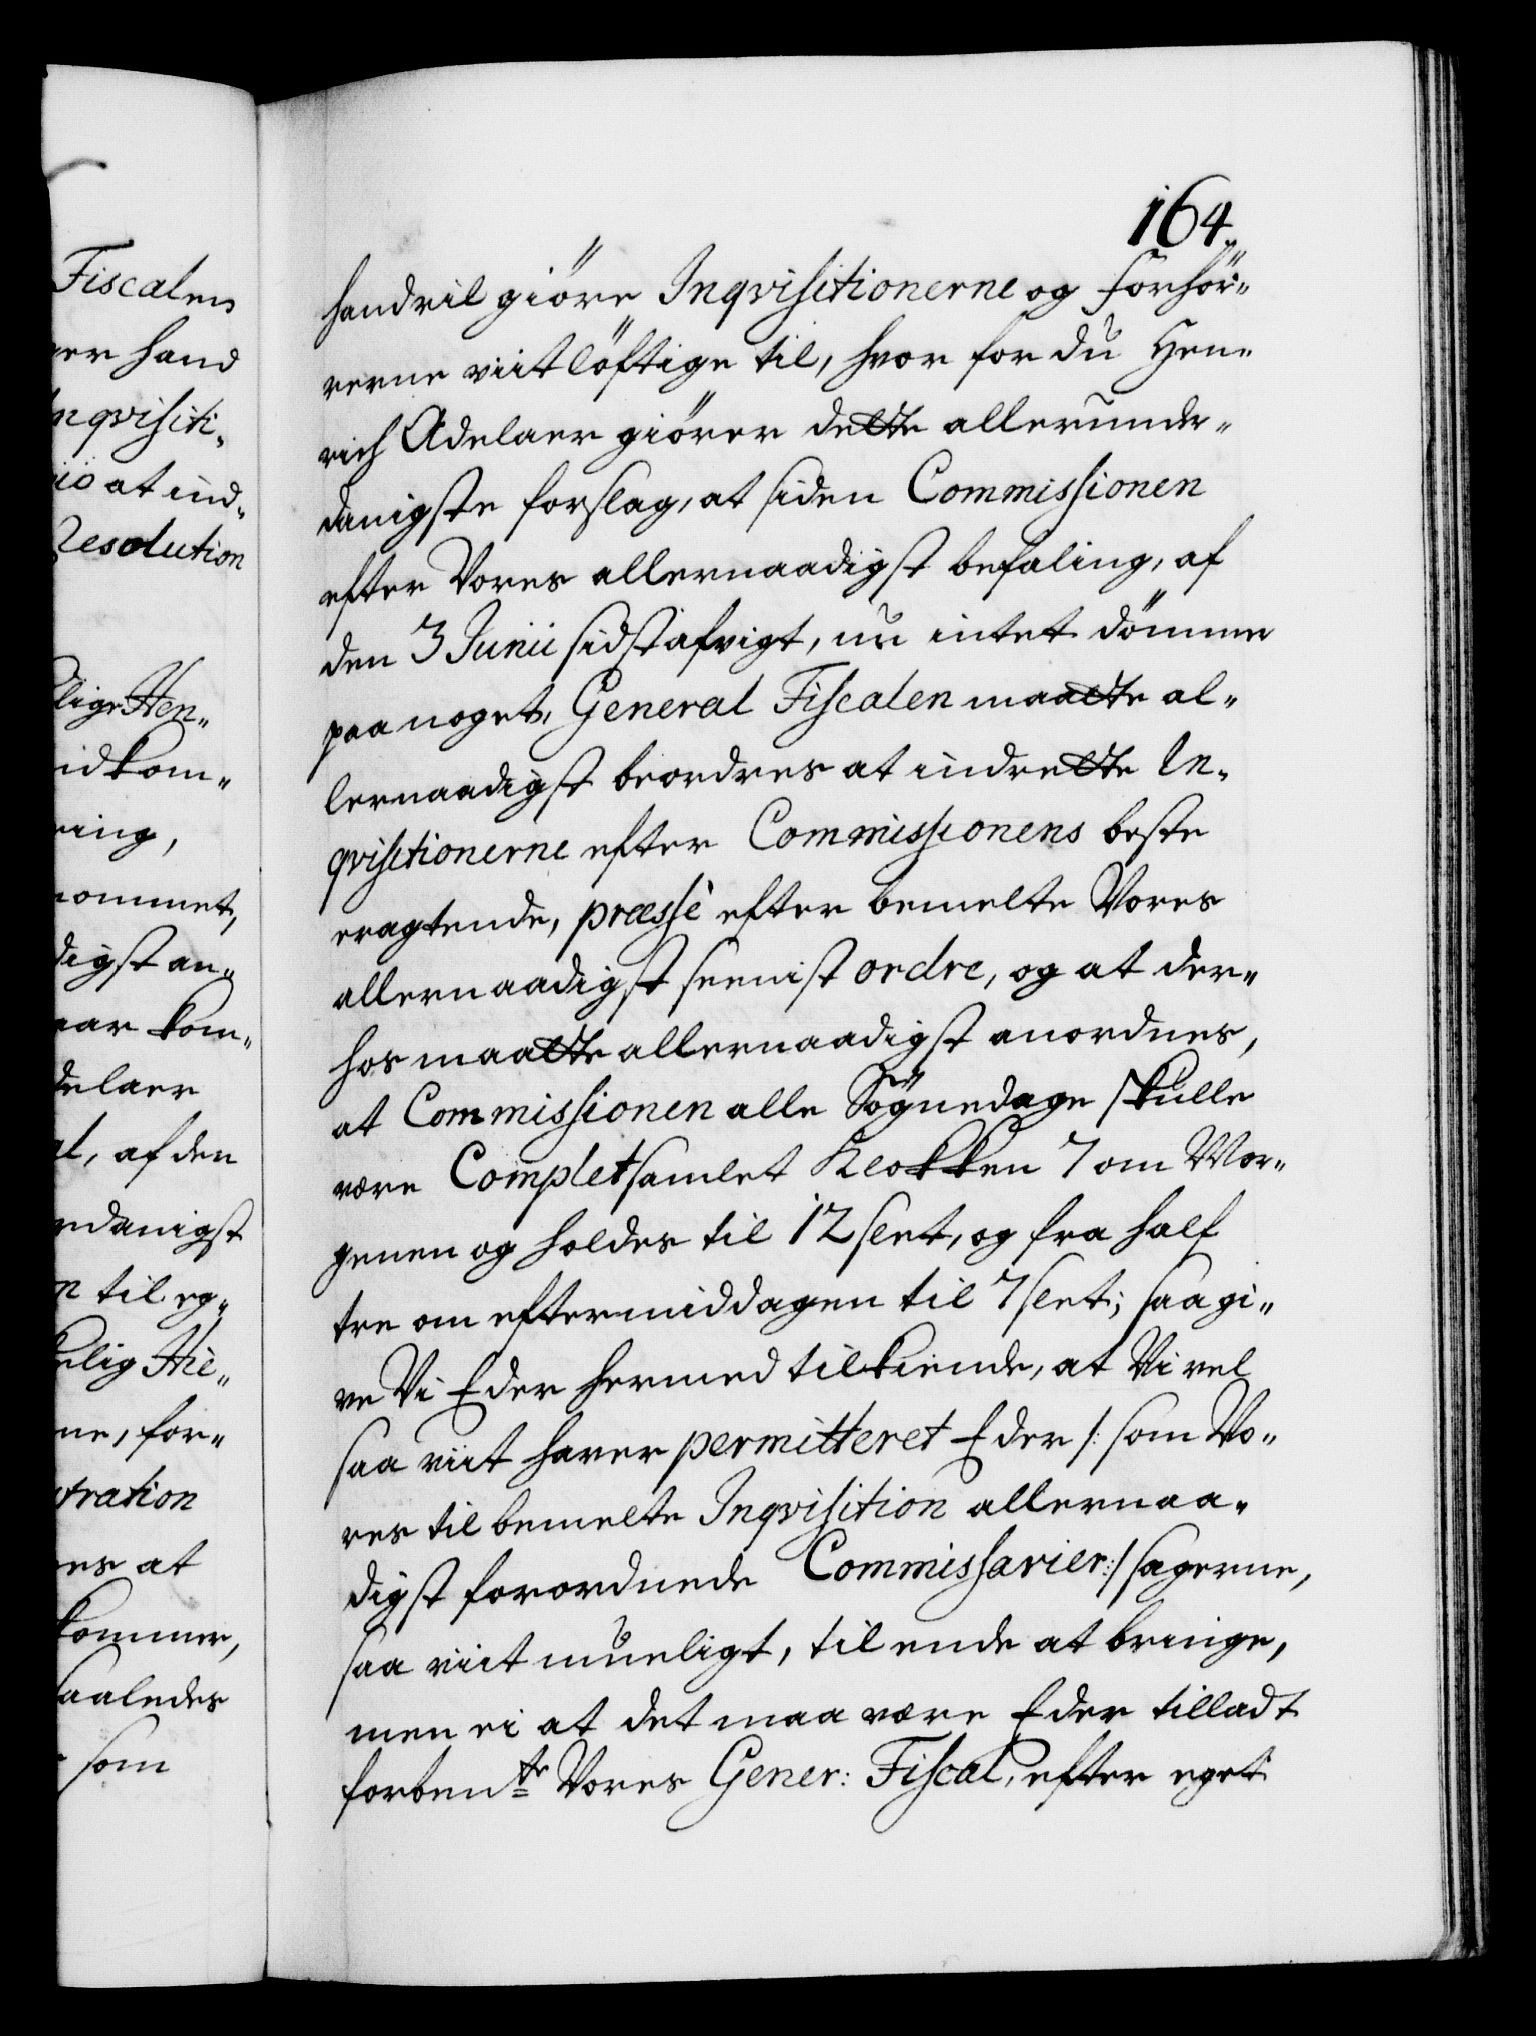 Fiscalen
er hand
nqvisiti-
io at ind-
Resolution
lige Hen-
idkom-
ring,
kommet,
digst an-
ar kom-
delaer
al, af den
rdanigst
n til eg-
elig Hie-
ne, for-
tration
es at
kommer,
saaledes
som
164.
hand vil giöre Inqvisitionerne og forhör-
rerne viitlöftige til, hvor for du Hen-
rich Adelaer giörer dette allerunder-
danigste forslag, at siden Commissionen
efter Vores allernaadigst befaling, af
den 3 Junii sidstafvigt, nu intet dömmer
paa noget, General Fiscalen maatte al-
lernaadigst beordres at indrette In-
qvisitionerne efter Commissionens beste
eragtende, præssè efter bemelte Vores
allernaadigst seenist ordre, og at der-
hos maatte allernaadigst anordnes,
at Commissionen alle Sögnedage skulle
være Complet samlet Klokken 7 om Mor-
genen og holdes til 12 slet, og fra half
tre om eftermiddagen til 7 slet; saa gi-
ve Vi Eder hermed tilkiende, at Vi vel
saa viit haver permitteret Eder /: som Vo-
res til bemelte Inqvisition allernaa-
digst forordnede Commissarier :/ sagerne,
saa viit mueligt, til ende at bringe,
men ei at det maa være Eder tilladt
forbente Vores Gener: Fiscal, efter eget